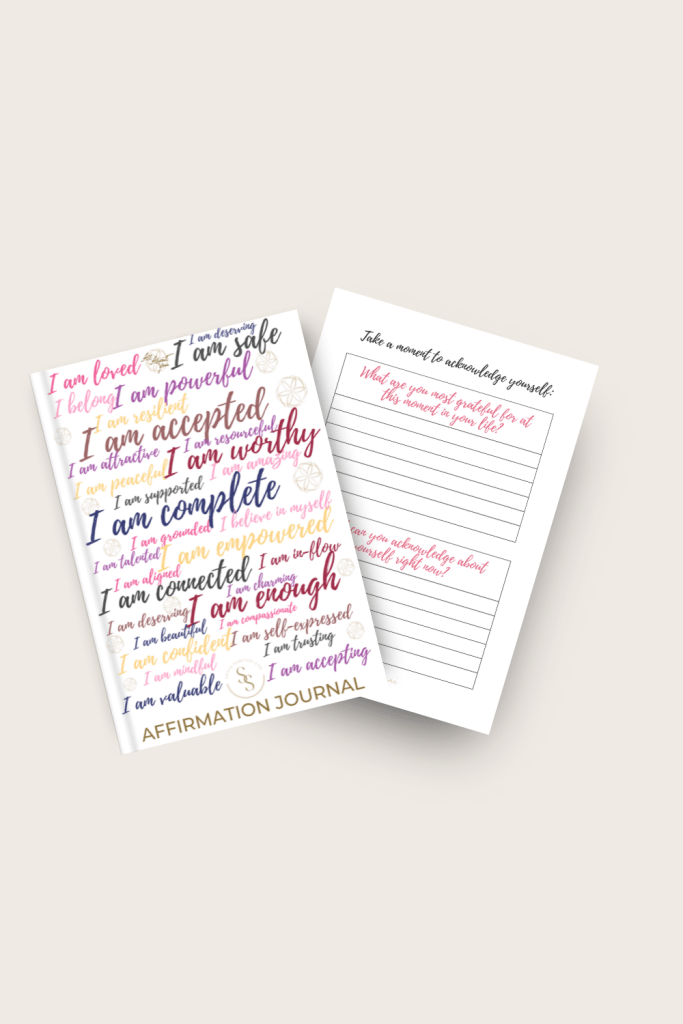 I am deserving
I am loved
I am safe
I belong
I am powerful
I am resilient
I am accepted
I am resourceful
I am attractive
I am worthy
I am peaceful
I am amazing
I am supported
I am complete
I believe in myself
I am grounded
I am empowered
I am talented
I am in-flow
I am aligned
I am connected
I am charming
I am enough
I am deserving
I am compassionate
I am beautiful
I am self-expressed
I am confident
I am trusting
I am mindful
I am accepting
I am valuable
SS
AFFIRMATION JOURNAL
Take a moment to acknowledge yourself:
What are you most grateful for at
this moment in your life?
can you acknowledge about
yourself right now?